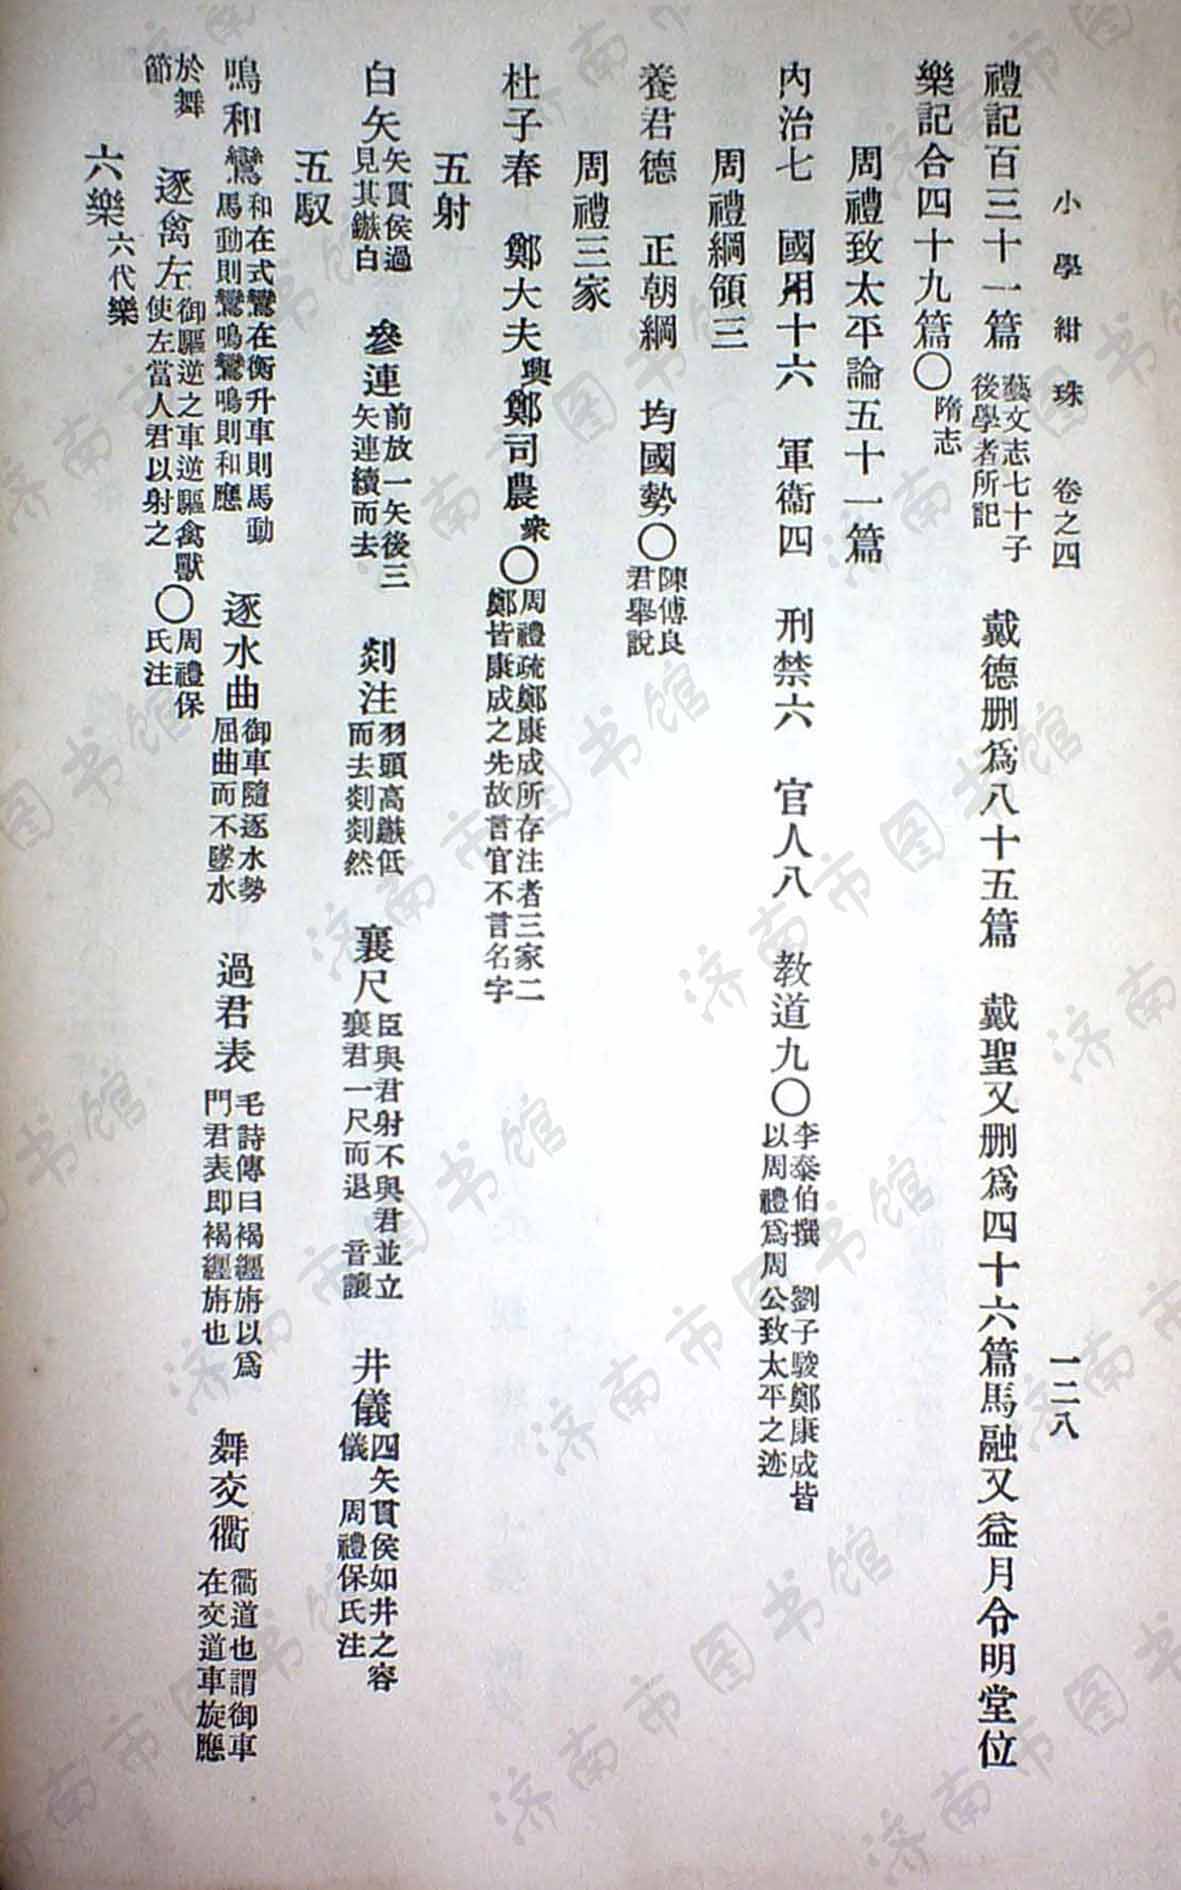 小學紺珠 卷之四 一二八
禮記百三十一篇 藝文志七十子後學者所記 戴德删爲八十五篇 戴聖又删爲四十六篇馬融又益月令明堂位
樂記合四十九篇〇隋志
周禮致太平論五十一篇
內治七 國用十六 軍衞四 刑禁六 官人八 教道九〇李泰伯撰 劉子駿鄭康成皆以周禮爲周公致太平之迹
周禮綱領三
養君德 正朝綱 均國勢〇陳傅良君舉說
周禮三家
杜子春 鄭大夫興 鄭司農衆〇周禮疏鄭康成所存注者三家二鄭皆康成之先故言官不言名字
五射
白矢矢貫侯過見其鏃白 參連前放一矢後三矢連續而去 剡注羽頭高鏃低而去剡剡然 襄尺臣與君射不與君並立襄君一尺而退 音讓 井儀四矢貫侯如井之容儀 周禮保氏注
五馭
鳴和鸞和在式鸞在衡升車則馬動馬動則鸞鳴鸞鳴則和應 逐水曲御車隨逐水勢屈曲而不墜水 過君表毛詩傳曰褐纏旃以爲門君表即褐纏旃也 舞交衢衢道也謂御車在交道車旋應
於舞節 逐禽左御驅逆之車逆驅禽獸使左當人君以射之〇周禮保氏注
六樂六代樂
济南市图书馆